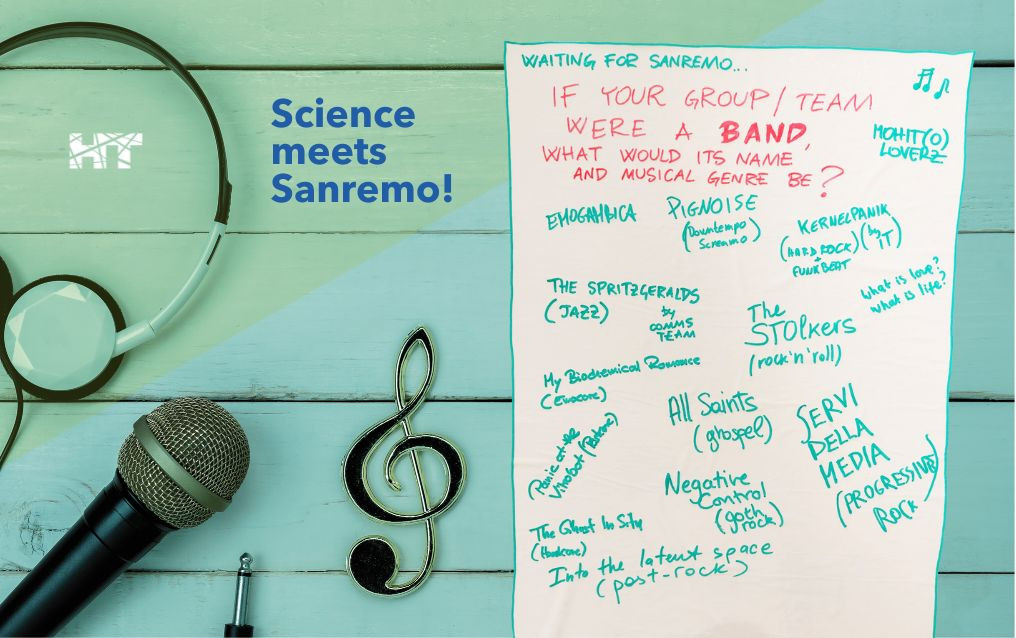 HT
Science
meets
Sanremo!
WAITING FOR SANREMO...
IF YOUR GROUP/TEAM
WERE A BAND,
WHAT WOULD ITS NAME
AND MUSICAL GENRE BE?
MOHIT(O)
LOVERZ
EMOGAMBICA
PIGNOISE
(Downtempo
Screamo)
KERNELPANIK
(HARD ROCK) (by
+ IT)
FUNKBEAT
what is love?
what is life?
THE SPRITZGERALDS
(JAZZ)
by
COMMS
TEAM
The
STOlkers
(rock'n'roll)
My Biochemical Romance
(Emocore)
All Saints
(ghospel)
SERVI
DELLA
MEDIA
(PROGRESSIVE)
ROCK
Panic at the
Vitrobot
Negative
Control
(goth
rock)
The Ghost In Situ
(Hardcore)
Into the latent space
(post-rock)